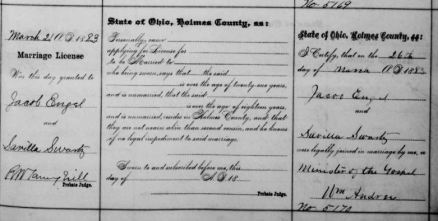 No 5169
March 21 A D 1883
Marriage License
Was this day granted to
Jacob Engel
and
Savilla Swartz
Probate Judge.
State of Ohio, Holmes County, ss:
Personally came
applying for License for
to be Married to
who being sworn, says that the said
is over the age of twenty-one years,
and is unmarried, that the said
is over the age of eighteen years,
and is unmarried, resides in Holmes County, and that
they are not nearer akin than second cousin, and he knows
of no legal impediment to said marriage.
Sworn to and subscribed before me, this
day of A. D. 18
Probate Judge.
State of Ohio, Holmes County, ss:
I Certify, that on the 26th
day of March A D 1883
Jacob Engel
and
Savilla Swartz
were legally joined in marriage by me, a
Minister of the Gospel
Wm
No 5170